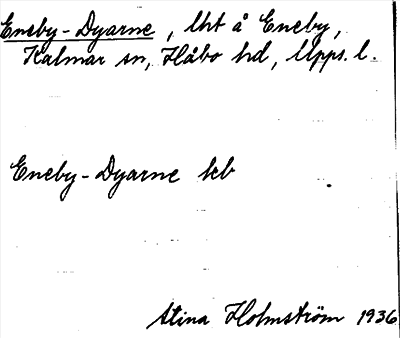 Eneby-Dyarne, lht å Eneby,
Kalmar sn, Håbo hd, Upps. l.
Eneby-Dyarne kb
Stina Holmström 1936